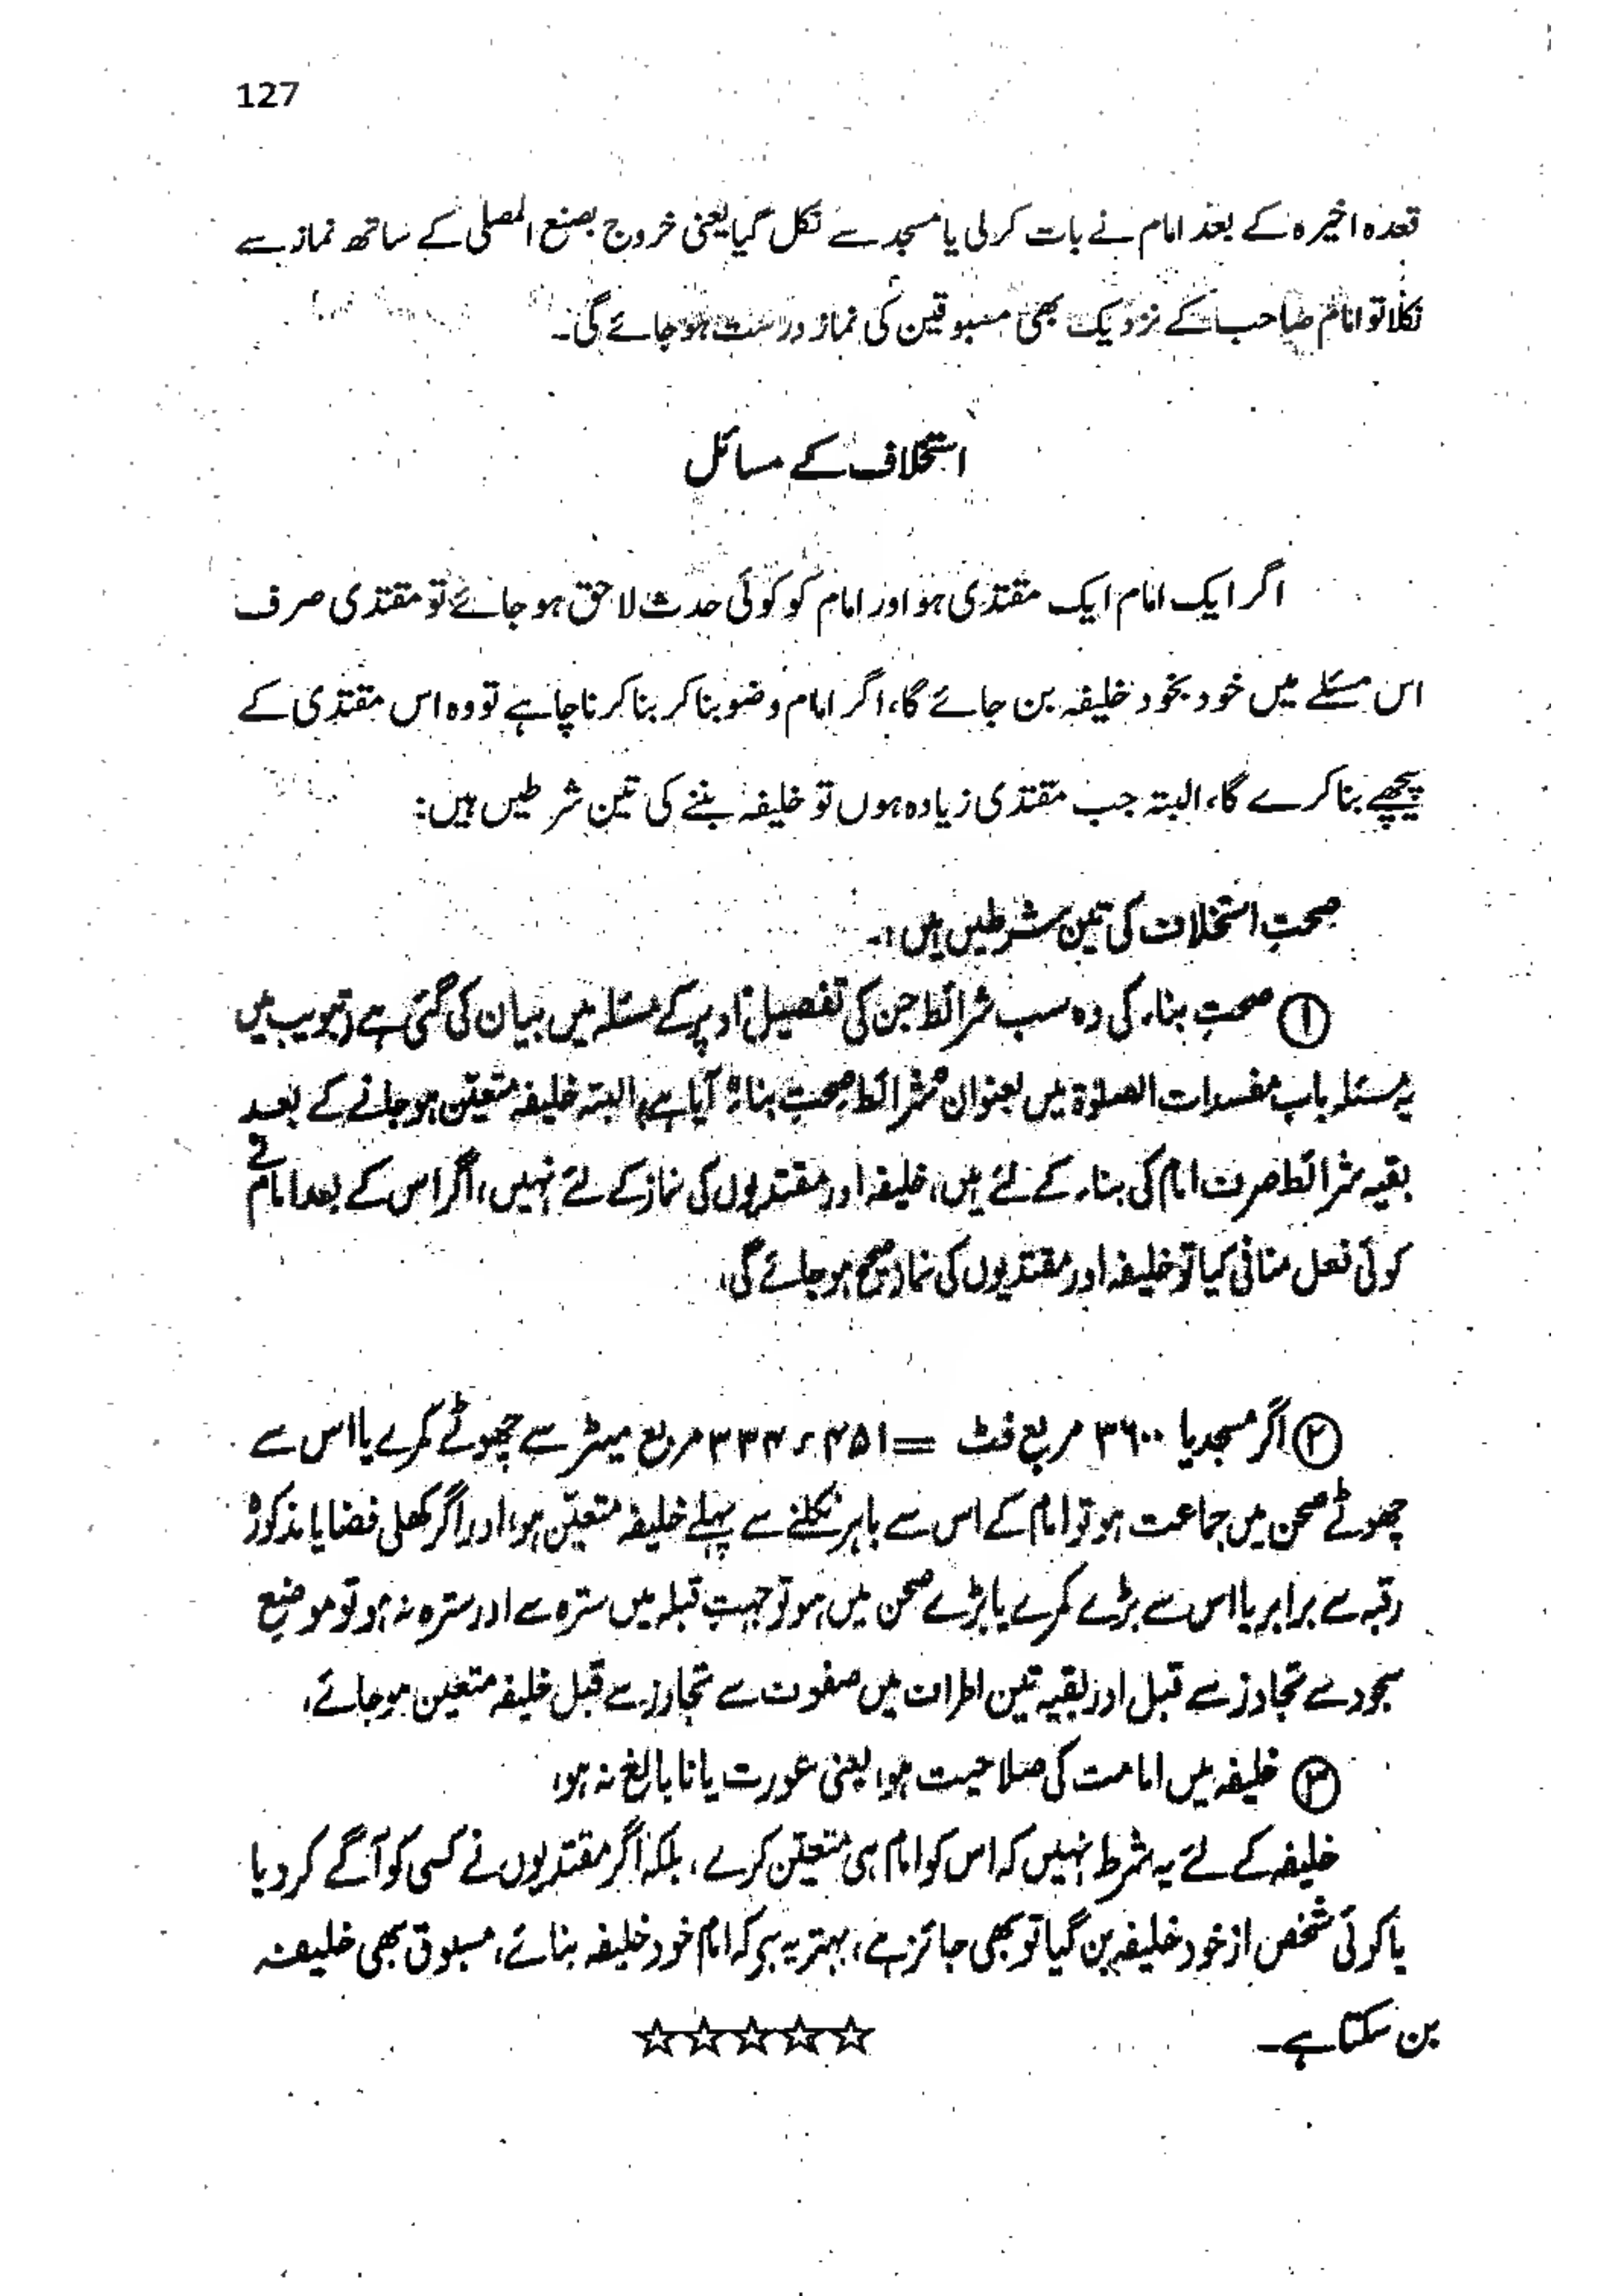 127
قعدہ اخیرہ کے بعد امام نے بات کرلی یا مسجد سے نکل گیا یعنی خروج بصنع المصلی کے ساتھ نماز سے
نکلا تو امام صاحب کے نزدیک بھی مسبوقین کی نماز درست ہو جائے گی۔
استخلاف کے مسائل
اگر ایک امام ایک مقتدی ہو اور امام کو کوئی حدث لاحق ہو جائے تو مقتدی صرف
اس مسئلے میں خود بخود خلیفہ بن جائے گا، اگر امام وضو بنا کر بنا کرنا چاہے تو وہ اس مقتدی کے
پیچھے بنا کرے گا، البتہ جب مقتدی زیادہ ہوں تو خلیفہ بننے کی تین شرطیں ہیں:
صحتِ استخلاف کی تین شرطیں ہیں :۔
① صحتِ بناء کی وہ سب شرائط جن کی تفصیل اوپر کے مسئلہ میں بیان کی گئی ہے (تبویب میں
یہ مسئلہ باب مفسدات الصلوٰۃ میں بعنوان "شرائط صحتِ بناء" آیا ہے) البتہ خلیفہ متعیّن ہو جانے کے بعد
بقیہ شرائط صرف امام کی بناء کے لئے ہیں، خلیفہ اور مقتدیوں کی نماز کے لئے نہیں، اگر اس کے بعد امام نے
کوئی فعل منافی کیا تو خلیفہ اور مقتدیوں کی نماز صحیح ہو جائے گی،
② اگر مسجد یا ۳۶۰۰ مربع فٹ = ۳۳۴٫۴۵۱ مربع میٹر سے چھوٹے کمرے یا اس سے
چھوٹے صحن میں جماعت ہو تو امام کے اس سے باہر نکلنے سے پہلے خلیفہ متعیّن ہو، اور اگر کھلی فضا یا مذکورہ
رقبہ سے برابر یا اس سے بڑے کمرے یا بڑے صحن میں ہو تو جہتِ قبلہ میں سترہ سے اور سترہ نہ ہو تو موضعِ
سجود سے تجاوز سے قبل اور بقیہ تین اطراف میں صفوف سے تجاوز سے قبل خلیفہ متعین ہو جائے،
③ خلیفہ میں امامت کی صلاحیت ہو، یعنی عورت یا نابالغ نہ ہو،
خلیفہ کے لئے یہ شرط نہیں کہ اس کو امام ہی متعیّن کرے، بلکہ اگر مقتدیوں نے کسی کو آگے کر دیا
یا کوئی شخص از خود خلیفہ بن گیا تو بھی جائز ہے، بہتر یہ ہے کہ امام خود خلیفہ بنائے، مسبوق بھی خلیفہ
بن سکتا ہے۔ ☆☆☆☆☆